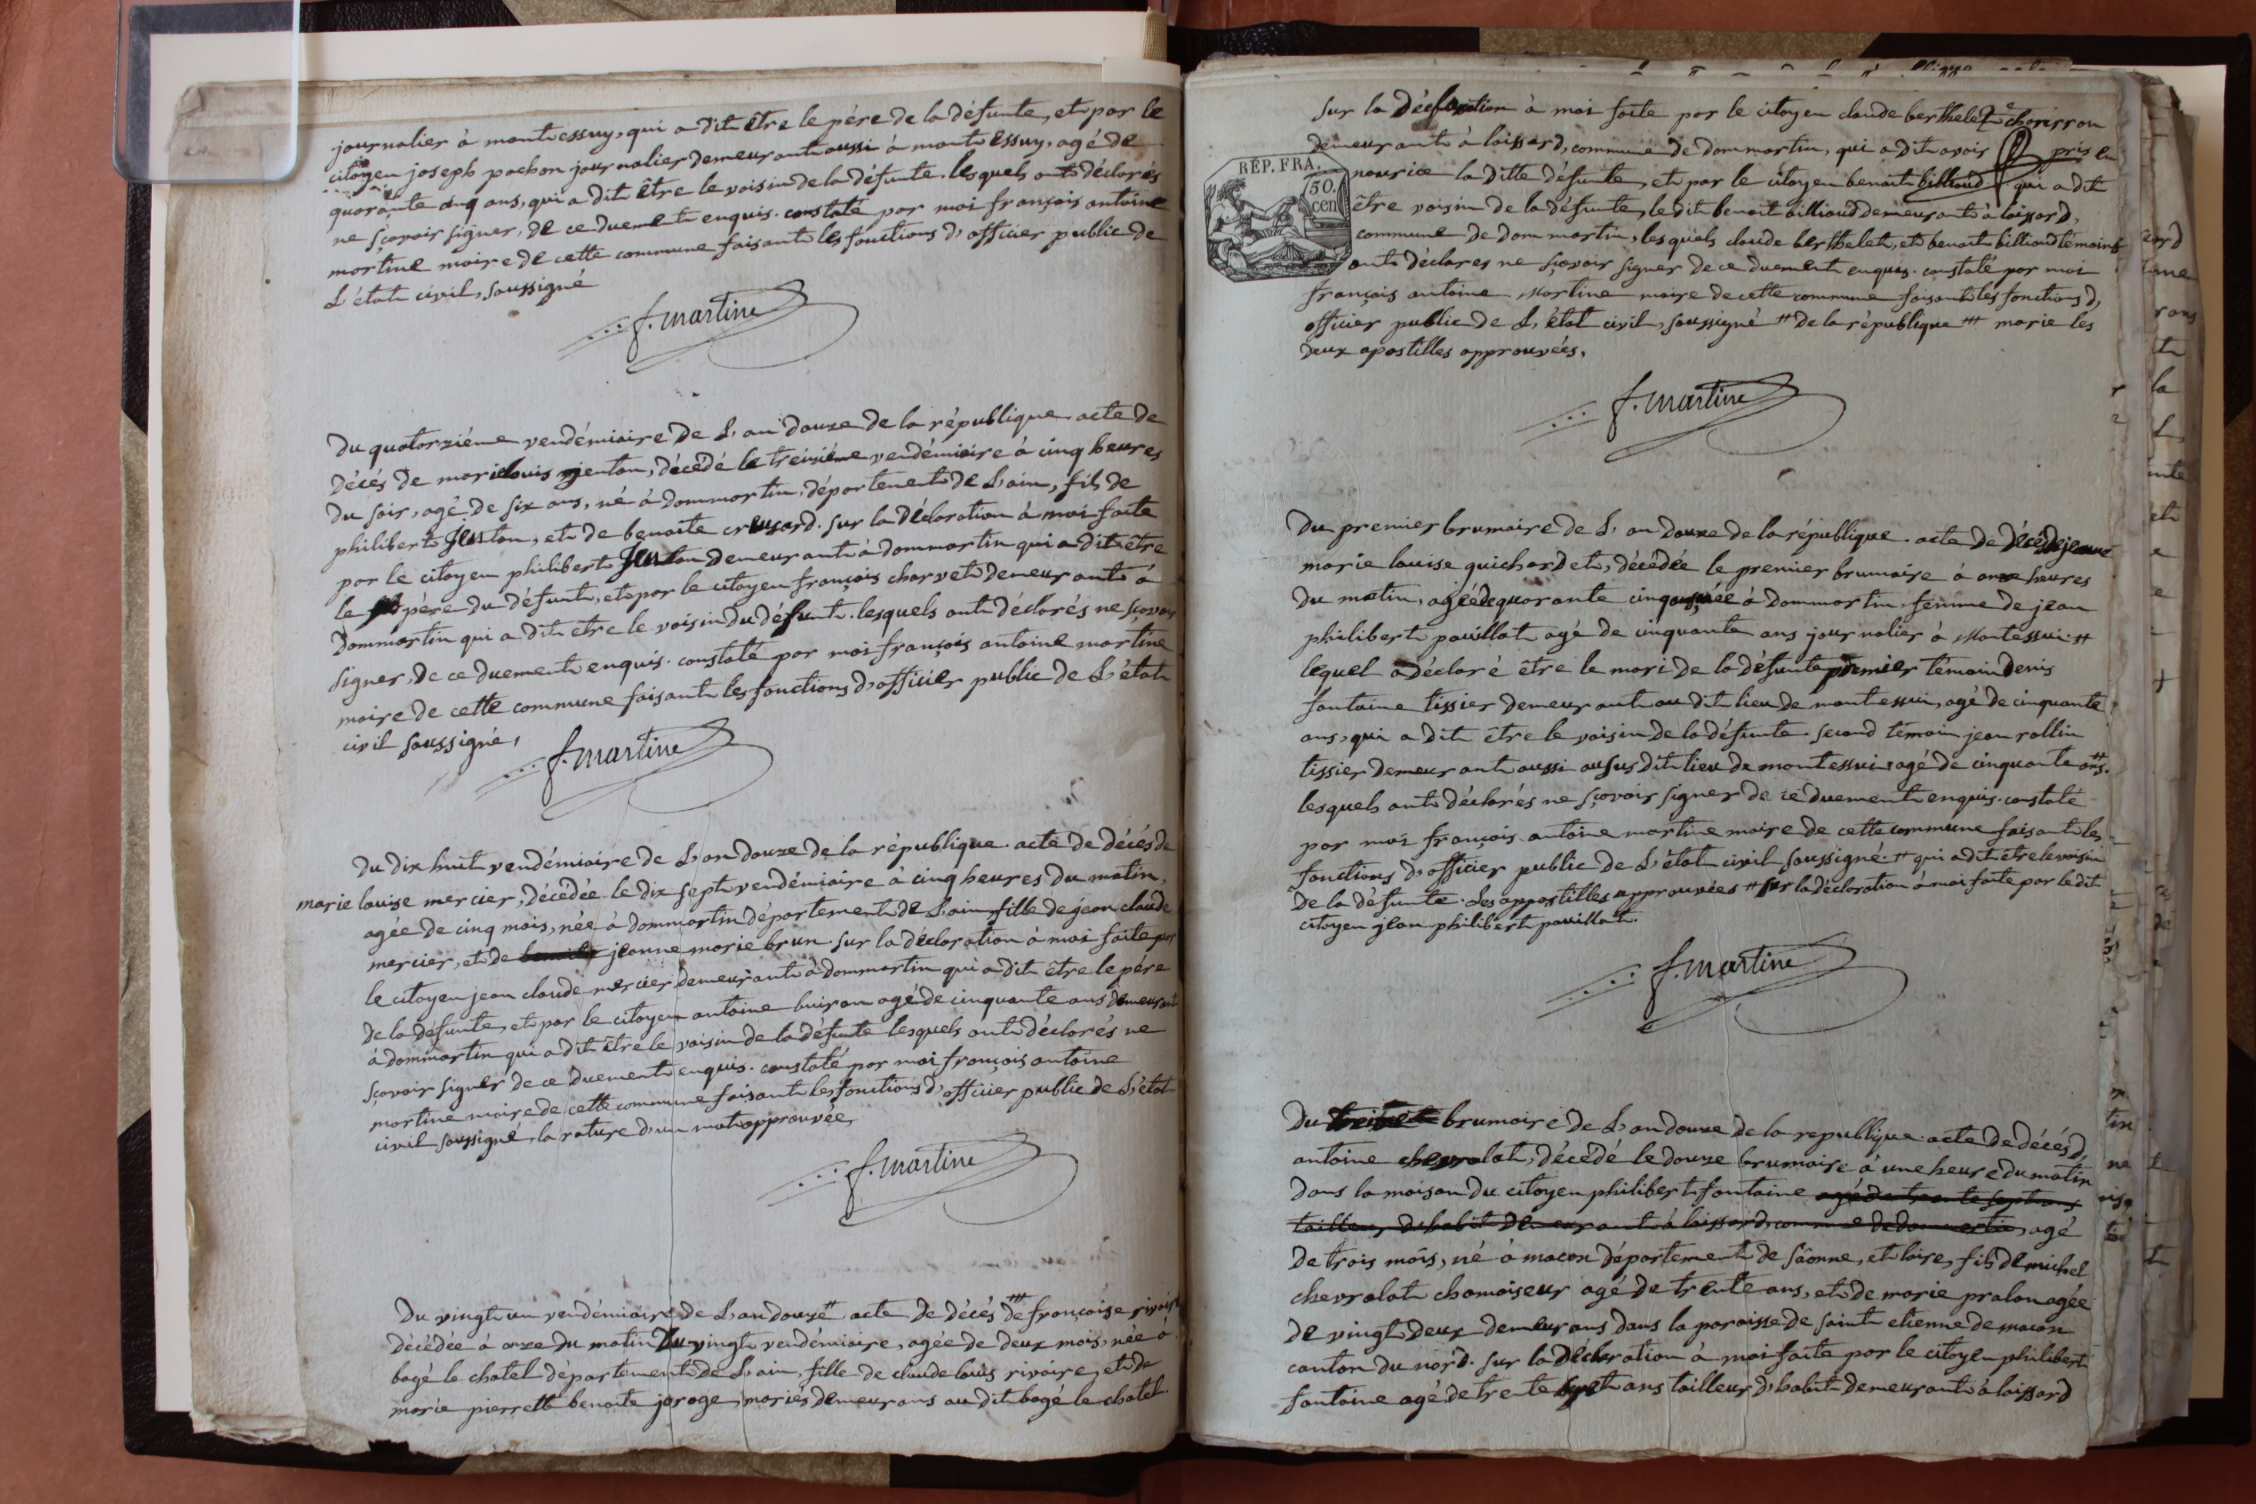 journalier à montessuy, qui a dit être le père de la défunte, et par le
citoyen joseph pochon journalier demeurant aussi à mont essuy, agé de
quarante cinq ans, qui a dit être le voisin de la défunte. lesquels ont déclarés
ne sçavoir signer, de ce duement enquis. constaté par moi françois antoine
martine maire de cette commune faisant les fonctions d'officier public de
L'état civil, soussigné
f. martine
Du quatorzième vendémiaire de L'an douze de la république. acte de
décés de marie louis jenton, décédé le treizième vendémiaire à cinq heures
du soir, agé de six ans, né à dommartin, département de L'ain, fils de
philibert jenton, et de benoite creusard. sur la déclaration à moi faite
par le citoyen philibert jenton demeurant à dommartin qui a dit être
le père du défunt, et par le citoyen françois charvet demeurant à
Dommartin qui a dit être le voisin du défunt. lesquels ont déclarés ne sçavoir
signer, de ce duement enquis. constaté par moi françois antoine martine
maire de cette commune faisant les fonctions d'officier public de L'état
civil soussigné,
f. martine
Du dix huit vendémiaire de L'an douze de la république. acte de décés de
marie louise mercier, décédée le dix sept vendémiaire à cinq heures du matin,
agée de cinq mois, née à dommartin département de L'ain fille de jean claude
mercier, et de jeanne marie brun. sur la déclaration à moi faite par
le citoyen jean claude mercier demeurant à dommartin qui a dit être le père
de la défunte, et par le citoyen antoine buiron agé de cinquante ans demeurant
à dommartin qui a dit être le voisin de la défunte lesquels ont déclarés ne
sçavoir signer de ce duement enquis. constaté par moi françois antoine
martine maire de cette commune faisant les fonctions d'officier public de L'état
civil soussigné, la rature d'un mot approuvée,
f. martine
Du vingt un vendémiaire de L'an douze # acte de décés de ### françoise rivoire
décédée à onze du matin Du vingt vendémiaire, agée de deux mois, née à
bagé le chatel département de L'ain, fille de claude louis rivoire, et de
marie pierrette benoite jarage, mariés demeurans au dit bagé le chatel.
sur la déclaration à moi faite par le citoyen claude berthelet
demeurant à loissard, commune de dommartin, qui a dit avoir pris en
nourice la ditte défunte, et par le citoyen benoit billioud qui a dit
RÉP. FRA.
50. cen
être voisin de la défunte, le dit benoit billioud demeurant à loissard,
commune de dom martin, lesquels claude berthelet, et benoit billioud témoins
ont déclarés ne sçavoir signer de ce duement enquis. constaté par moi
françois antoine Martine maire de cette commune faisant les fonctions d'
officier public de L'état civil, soussigné # de la république ### marie les
deux apostilles approuvées,
f. martine
Du premier brumaire de L'an douze de la république. acte de décés de jeanne
marie louise quichardet, décédée le premier brumaire à onze heures
du matin, agée de quarante cinq ans, née à dommartin. femme de jean
philibert pauillat agé de cinquante ans journalier à Montessui #
lequel a déclaré être le mari de la défunte premier témoin denis
fontaine tissier demeurant au dit lieu de montessui, agé de cinquante
ans, qui a dit être le voisin de la défunte. second témoin jean rollin
tissier demeurant aussi au susdit lieu de montessui agé de cinquante ans. ##
lesquels ont déclarés ne sçavoir signer de ce duement enquis. constaté
par moi françois antoine martine maire de cette commune faisant les
fonctions d'officier public de L'état civil soussigné. # qui a dit être le voisin
de la défunte. Les appostilles approuvées # sur la déclaration à moi faite par le dit
citoyen jean philibert pauillat.
f. martine
Du brumaire de L'an douze de la republique. acte de décés d'
antoine chevralat, décédé le douze brumaire à une heure du matin
dans la maison du citoyen philibert fontaine agé de trente sept ans
tailleur d'habit demeurant à loissard commune de dommartin, agé
de trois mois, né à macon département de sâonne, et loire, fils de michel
chevralat chamoiseur agé de trente ans, et de marie pralon agée
de vingt deux demeurans dans la paroisse de saint etienne de macon
canton du nord. sur la déclaration à moi faite par le citoyen philibert
fontaine agé de trente sept ans tailleur d'habit demeurant à loissard